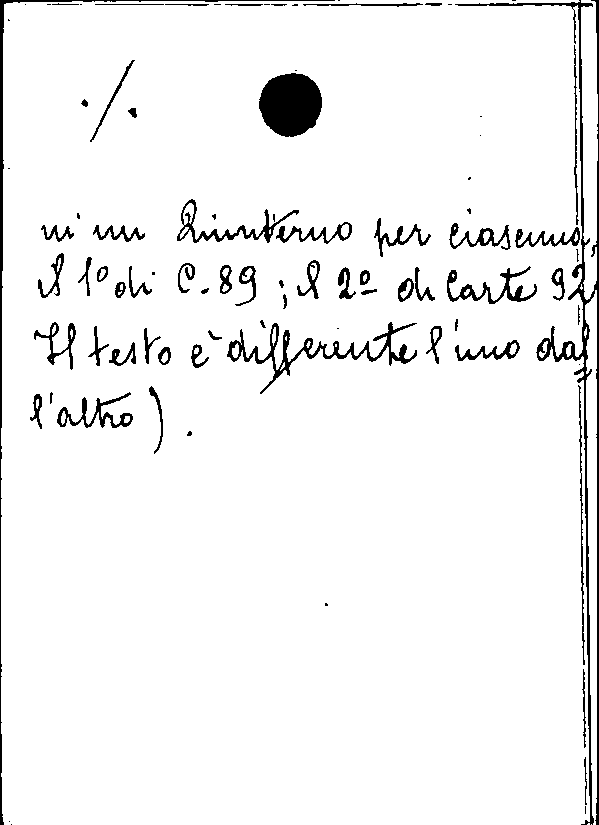 ./.
in un Quinterno per ciascuno,
Il 1º di C. 89; Il 2º di Carte 92
Il testo è differente l'uno dal=
l'altro).